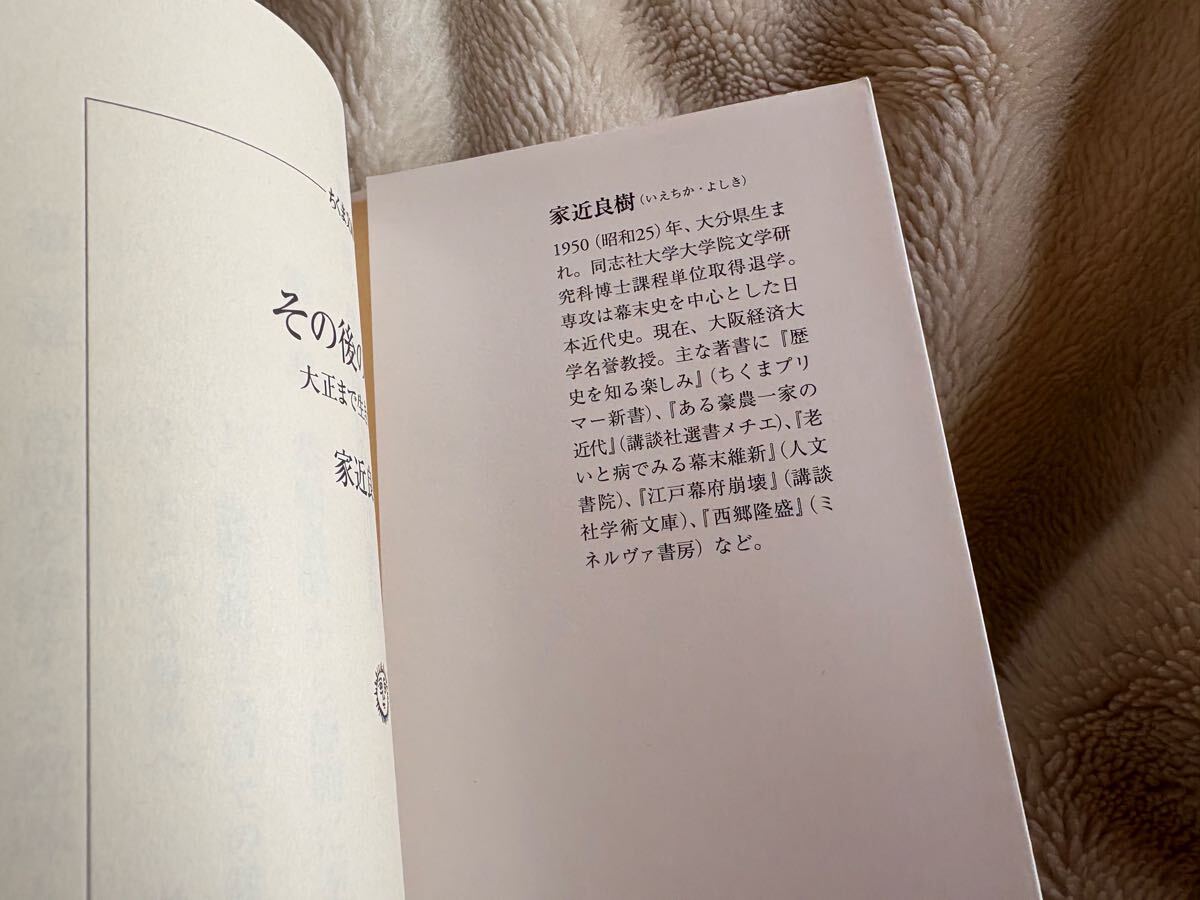 ちくま
その後の
大正まで生き
家近良
家近良樹(いえちか・よしき)
1950(昭和25)年、大分県生ま
れ。同志社大学大学院文学研
究科博士課程単位取得退学。
専攻は幕末史を中心とした日
本近代史。現在、大阪経済大
学名誉教授。主な著書に『歴
史を知る楽しみ』(ちくまプリ
マー新書)、『ある豪農一家の
近代』(講談社選書メチエ)、『老
いと病でみる幕末維新』(人文
書院)、『江戸幕府崩壊』(講談
社学術文庫)、『西郷隆盛』(ミ
ネルヴァ書房) など。